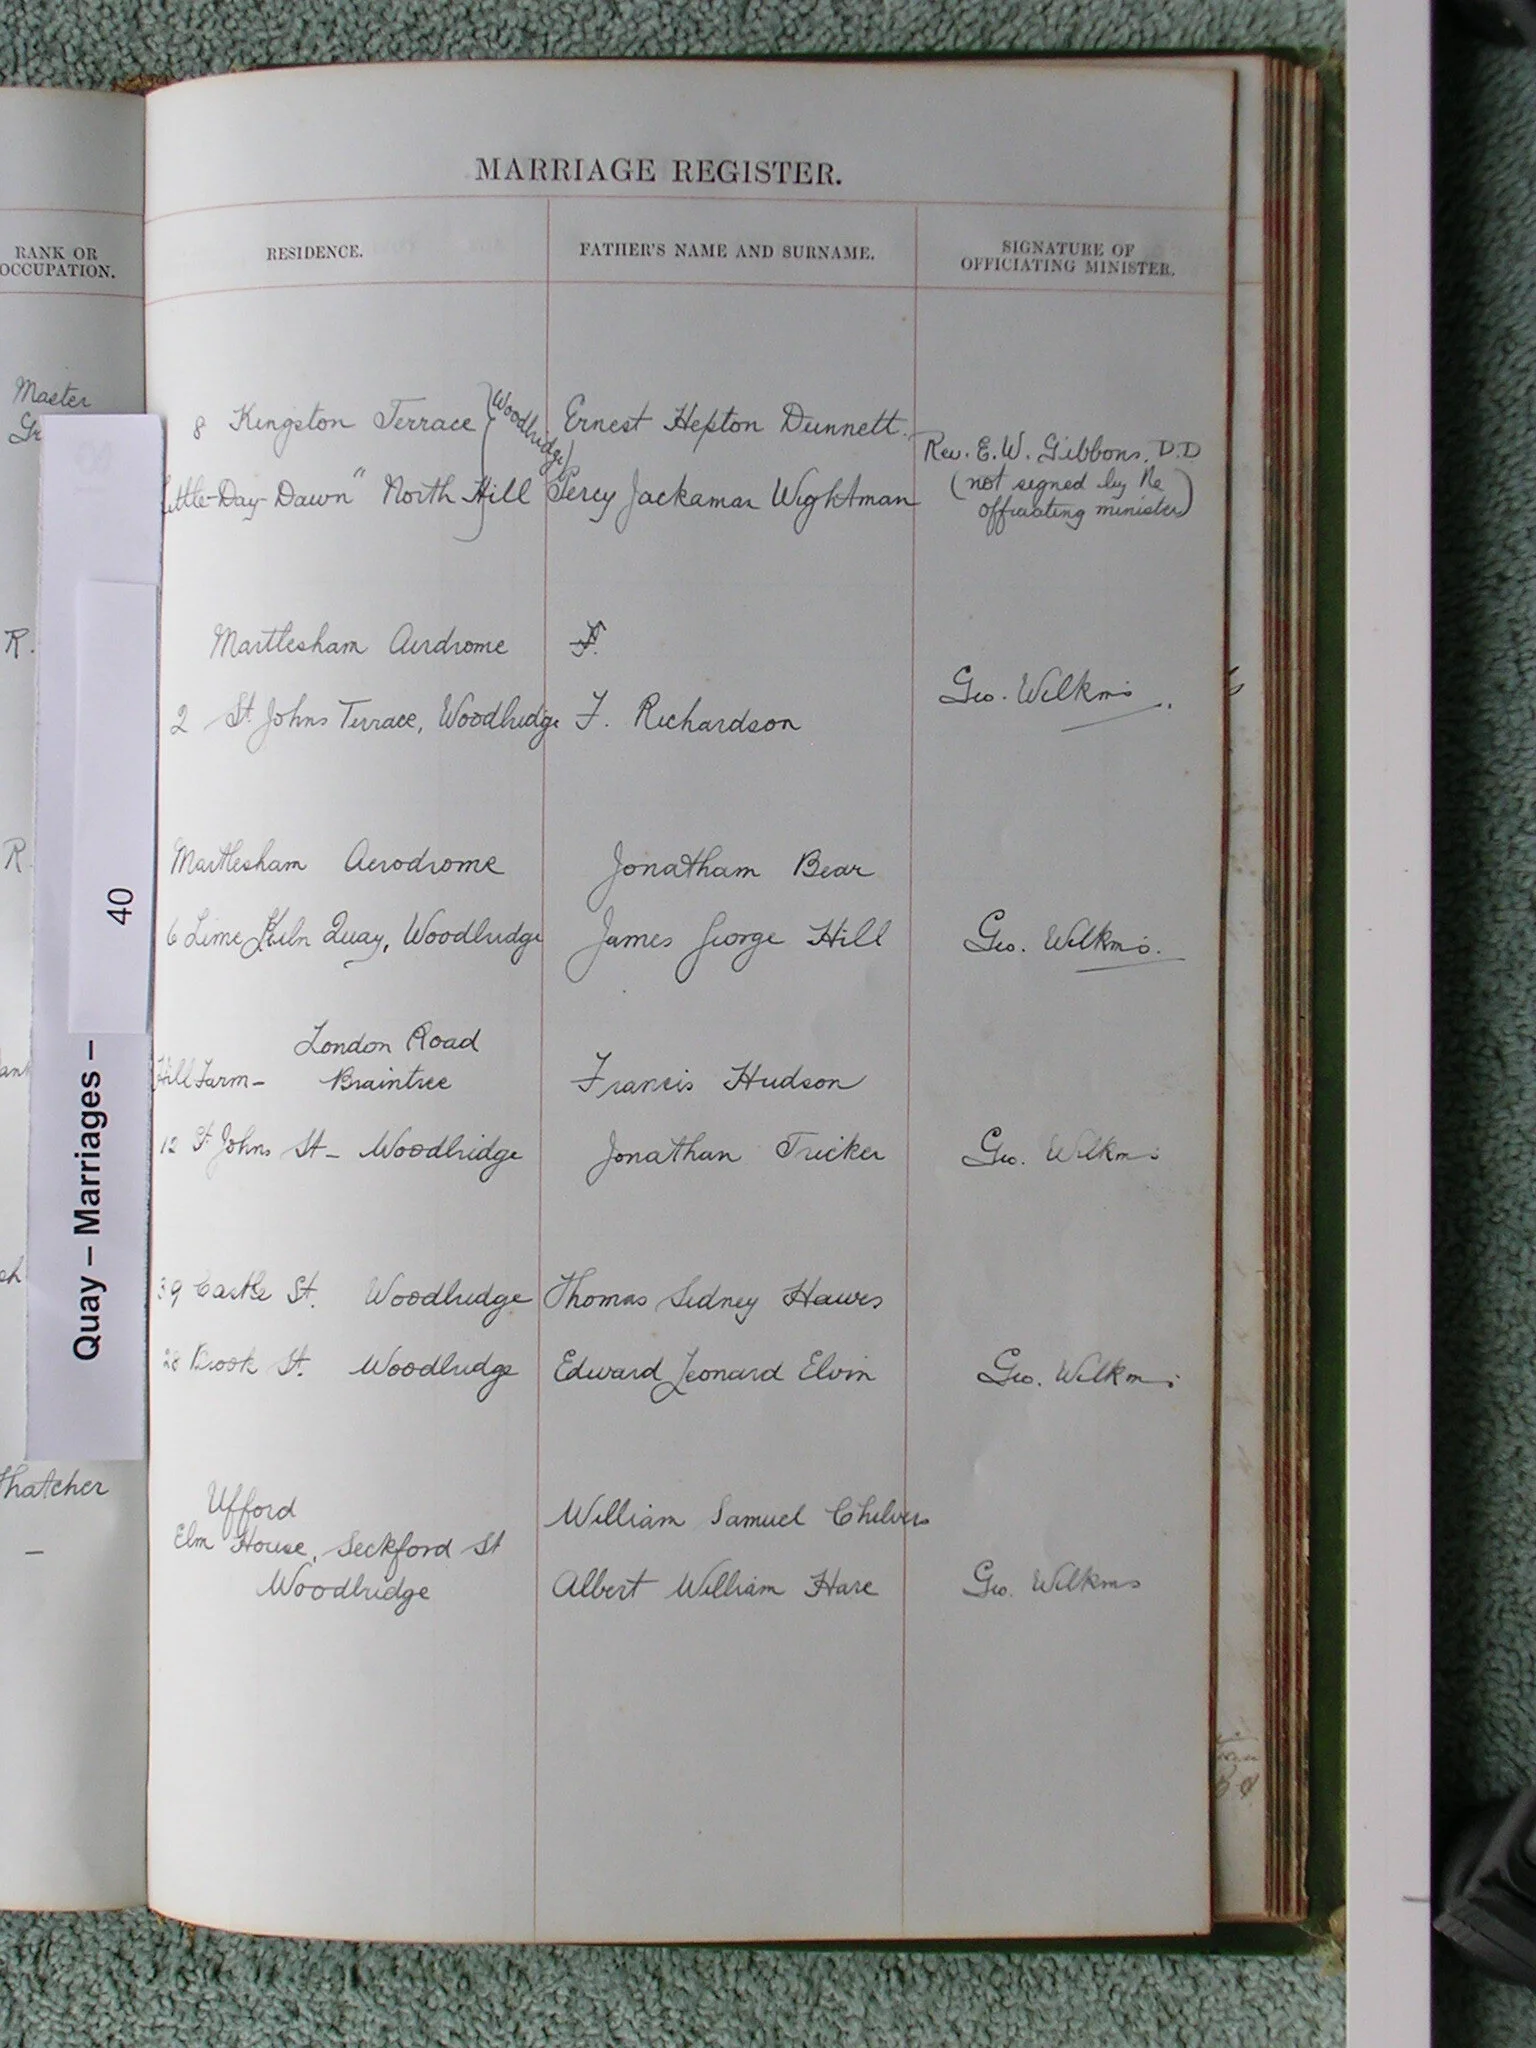 MARRIAGE REGISTER.
RANK OR
OCCUPATION.
RESIDENCE.
FATHER'S NAME AND SURNAME.
SIGNATURE OF
OFFICIATING MINISTER.
Master
8 Kingston Terrace (Woodbridge) Ernest Hepton Dunnett.
Rev. E. W. Gibbons. D.D
(not signed by the
officiating minister)
ttle-Day-Dawn" North Hill Percy Jackaman Wightman
R. Martlesham Airdrome F.
2 St Johns Terrace, Woodbridge F. Richardson Geo. Wilkins
R. Martlesham Aerodrome Jonatham Bear
6 Lime Kiln Quay, Woodbridge James George Hill Geo. Wilkins.
London Road
Hill Farm - Braintree Francis Hudson
12 St Johns St - Woodbridge Jonathan Tricker Geo. Wilkins
39 Castle St. Woodbridge Thomas Sidney Hawes
28 Brook St. Woodbridge Edward Leonard Elvin Geo. Wilkins
Thatcher
Ufford William Samuel Chilvers
–
Elm House, Seckford St
Woodbridge Albert William Hare Geo. Wilkins
Quay – Marriages – 40